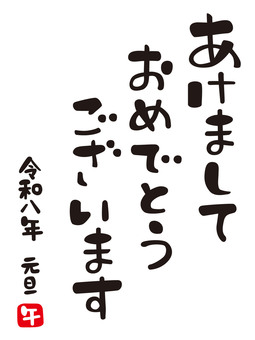 あけまして
おめでとう
ございます
令和八年 元旦
午